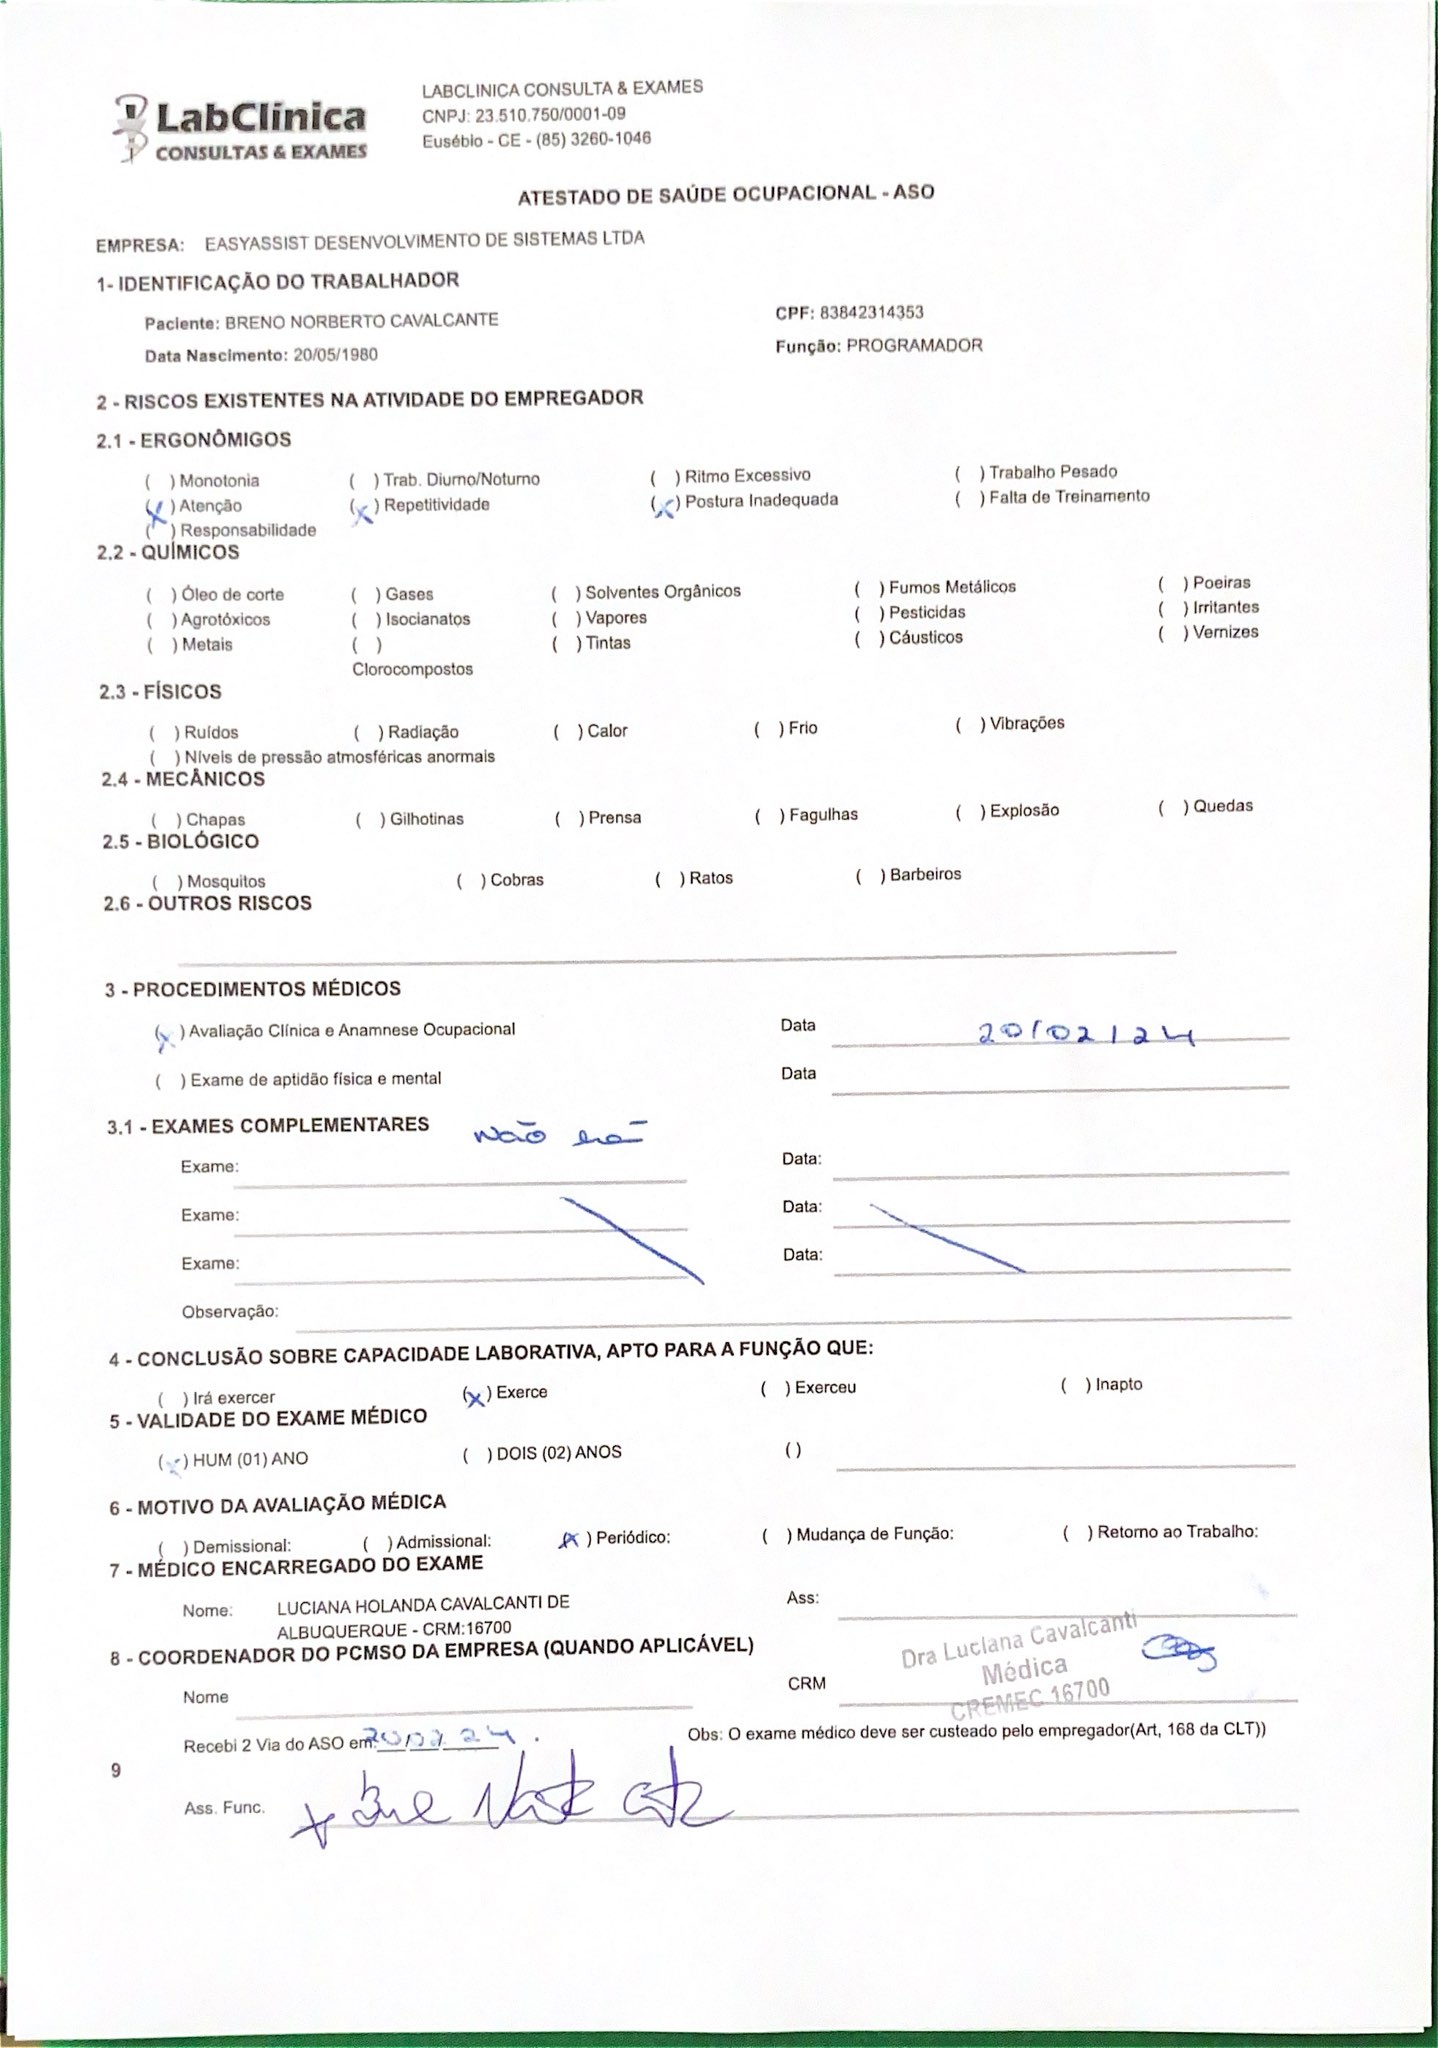 LabClínica
CONSULTAS & EXAMES
LABCLINICA CONSULTA & EXAMES
CNPJ: 23.510.750/0001-09
Eusébio - CE - (85) 3260-1046
ATESTADO DE SAÚDE OCUPACIONAL - ASO
EMPRESA: EASYASSIST DESENVOLVIMENTO DE SISTEMAS LTDA
1- IDENTIFICAÇÃO DO TRABALHADOR
Paciente: BRENO NORBERTO CAVALCANTE CPF: 83842314353
Data Nascimento: 20/05/1980 Função: PROGRAMADOR
2 - RISCOS EXISTENTES NA ATIVIDADE DO EMPREGADOR
2.1 - ERGONÔMIGOS
( ) Monotonia ( ) Trab. Diurno/Noturno ( ) Ritmo Excessivo ( ) Trabalho Pesado
(x) Atenção (x) Repetitividade (x) Postura Inadequada ( ) Falta de Treinamento
( ) Responsabilidade
2.2 - QUÍMICOS
( ) Óleo de corte ( ) Gases ( ) Solventes Orgânicos ( ) Fumos Metálicos ( ) Poeiras
( ) Agrotóxicos ( ) Isocianatos ( ) Vapores ( ) Pesticidas ( ) Irritantes
( ) Metais ( ) ( ) Tintas ( ) Cáusticos ( ) Vernizes
Clorocompostos
2.3 - FÍSICOS
( ) Ruídos ( ) Radiação ( ) Calor ( ) Frio ( ) Vibrações
( ) Níveis de pressão atmosféricas anormais
2.4 - MECÂNICOS
( ) Chapas ( ) Gilhotinas ( ) Prensa ( ) Fagulhas ( ) Explosão ( ) Quedas
2.5 - BIOLÓGICO
( ) Mosquitos ( ) Cobras ( ) Ratos ( ) Barbeiros
2.6 - OUTROS RISCOS
3 - PROCEDIMENTOS MÉDICOS
(x) Avaliação Clínica e Anamnese Ocupacional Data 20/02/24
( ) Exame de aptidão física e mental Data
3.1 - EXAMES COMPLEMENTARES Não há
Exame: Data:
Exame: Data:
Exame: Data:
Observação:
4 - CONCLUSÃO SOBRE CAPACIDADE LABORATIVA, APTO PARA A FUNÇÃO QUE:
( ) Irá exercer (x) Exerce ( ) Exerceu ( ) Inapto
5 - VALIDADE DO EXAME MÉDICO
(x) HUM (01) ANO ( ) DOIS (02) ANOS ( )
6 - MOTIVO DA AVALIAÇÃO MÉDICA
( ) Demissional: ( ) Admissional: (x) Periódico: ( ) Mudança de Função: ( ) Retorno ao Trabalho:
7 - MÉDICO ENCARREGADO DO EXAME
Nome: LUCIANA HOLANDA CAVALCANTI DE Ass:
ALBUQUERQUE - CRM:16700
8 - COORDENADOR DO PCMSO DA EMPRESA (QUANDO APLICÁVEL)
Dra Luciana Cavalcanti
Médica
CREMEC 16700
Nome CRM
Recebi 2 Via do ASO em: 20/02/24. Obs: O exame médico deve ser custeado pelo empregador(Art, 168 da CLT))
9
Ass. Func. x